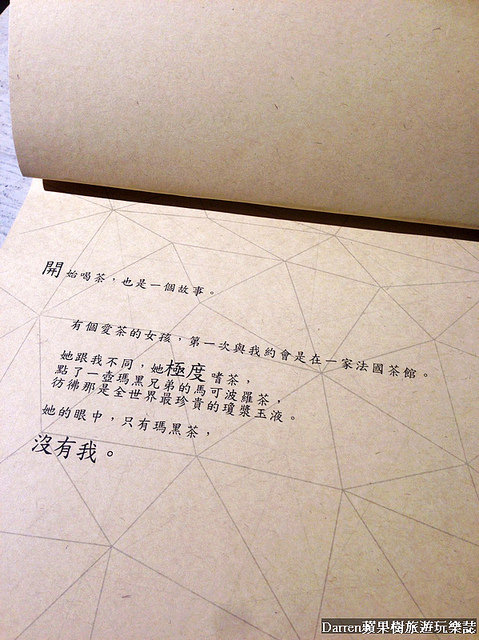 開始喝茶，也是一個故事。
有個愛茶的女孩，第一次與我約會是在一家法國茶館。
她跟我不同，她極度嗜茶，
點了一壺瑪黑兄弟的馬可波羅茶，
彷彿那是全世界最珍貴的瓊漿玉液。
她的眼中，只有瑪黑茶，
沒有我。
Darren蘋果樹旅遊玩樂誌